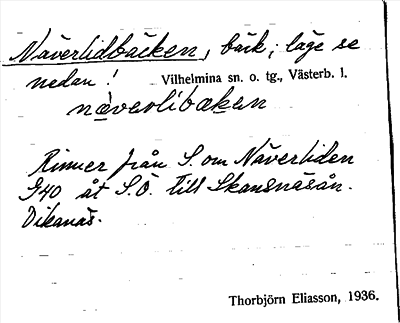 Näverlidbäcken, bäck; läge se
nedan! Vilhelmina sn. o. tg., Västerb. l.
nàverlibæken
Rinner från S. om Näverliden
G40 åt S.Ö. till Skansnäsån.
Dikanäs.
Thorbjörn Eliasson, 1936.